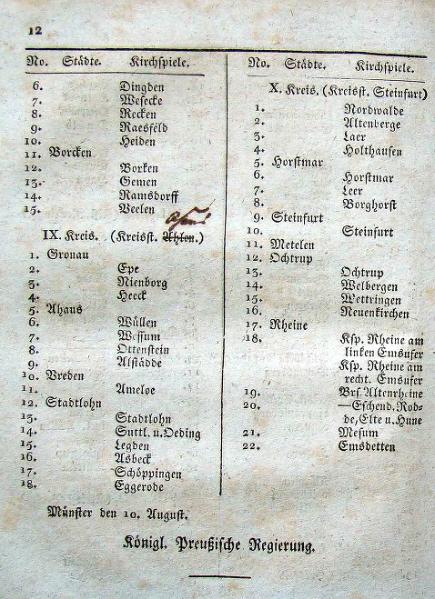 12
No. Städte. Kirchspiele.
6. Dingden
7. Weseke
8. Recken
9. Raesfeld
10. Heiden
11. Borcken
12. Borken
13. Gemen
14. Ramsdorff
15. Veelen
IX. Kreis. (Kreisst. Ahlen.)
1. Gronau
2. Epe
3. Nienborg
4. Heeck
5. Ahaus
6. Wüllen
7. Wessum
8. Ottenstein
9. Alstädde
10. Vreden
11. Ameloe
12. Stadtlohn
13. Stadtlohn
14. Suttl. u. Oeding
15. Legden
16. Asbeck
17. Schöppingen
18. Eggerode
No. Städte. Kirchspiele.
X. Kreis. (Kreisst. Steinfurt)
1. Nordwalde
2. Altenberge
3. Laer
4. Holthausen
5. Horstmar
6. Horstmar
7. Leer
8. Borghorst
9. Steinfurt
10. Steinfurt
11. Metelen
12. Ochtrup
13. Ochtrup
14. Welbergen
15. Wettringen
16. Neuenkirchen
17. Rheine
18. Ksp. Rheine am
linken Emsufer
Ksp. Rheine am
recht. Emsufer
19. Brs. Altenrheine
20. —Eschend. Rod-
de, Elte u. Hune
21. Mesum
22. Emsdetten
Münster den 10. August.
Königl. Preußische Regierung.